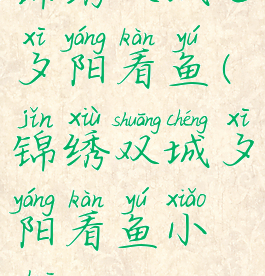 xī yáng kàn yú
夕阳看鱼(
jǐn xiù shuāng chéng xī
锦绣双城夕
yáng kàn yú xiǎo
阳看鱼小